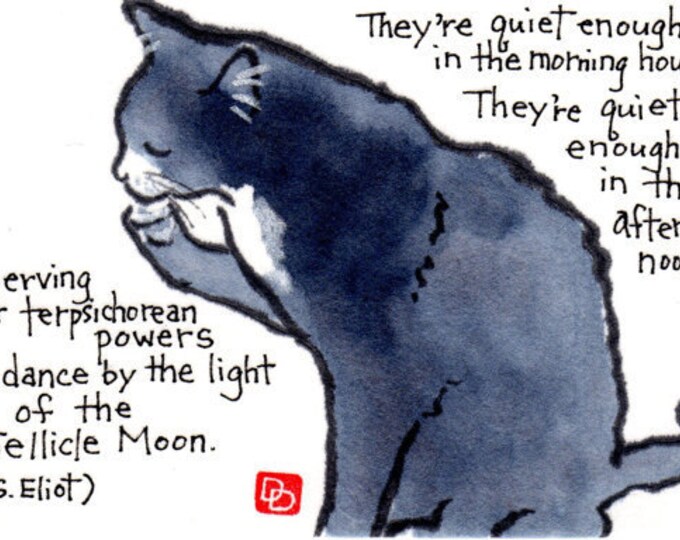 They're quiet enough
in the morning hou
They're quiet
enough
in th
after
noo
erving
r terpsichorean
powers
dance by the light
of the
ellicle Moon.
S. Eliot)
DD